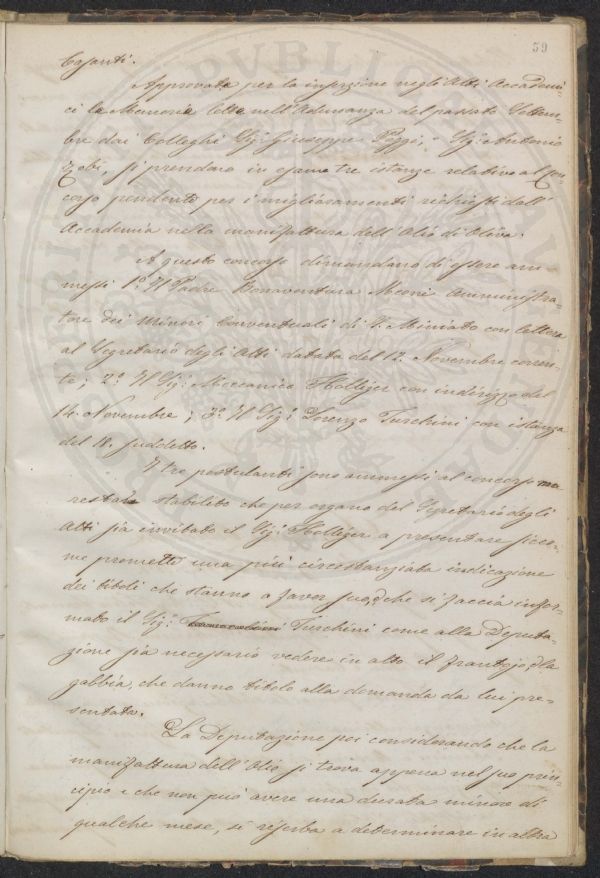 59
Approvata per la inserzione negli Atti Accademi-
ci la Memoria letta nell'Adunanza del passato Settem-
bre dai Colleghi Sig: Giuseppe e Sig: Antonio
Zobi, si prendono in esame tre istanze relative al Con-
corso pendente per i miglioramenti richiesti dall'
Accademia nella manifattura dell'Olio di Oliva.
A questo concorso dimandano di essere am-
messi 1.º Il Padre Bonaventura Meoni Amministra-
tore dei Minori Conventuali di S. Miniato con lettera
al Segretario degli Atti datata del 12. Novembre corren-
te; 2.º Il Sig: Meccanico Holliger con indirizzo del
14. Novembre; 3.º Il Sig: Lorenzo Turchini con istanza
del 18. suddetto.
I tre postulanti sono ammessi al concorso ma
resta stabilito che per organo del Segretario degli
Atti sia invitato il Sig: Holliger a presentare sicco-
me promette una più circostanziata indicazione
dei titoli che stanno a favor suo, e che si faccia infor-
mato il Sig: Turchini come alla Deputa-
zione sia necessario vedere in atto il frantojo, e la
gabbia, che danno titolo alla domanda da lui pre-
sentata.
La Deputazione poi considerando che la
manifattura dell'Olio si trova appena nel suo prin-
cipio e che non può avere una durata minore di
qualche mese, si riserba a determinare in altra